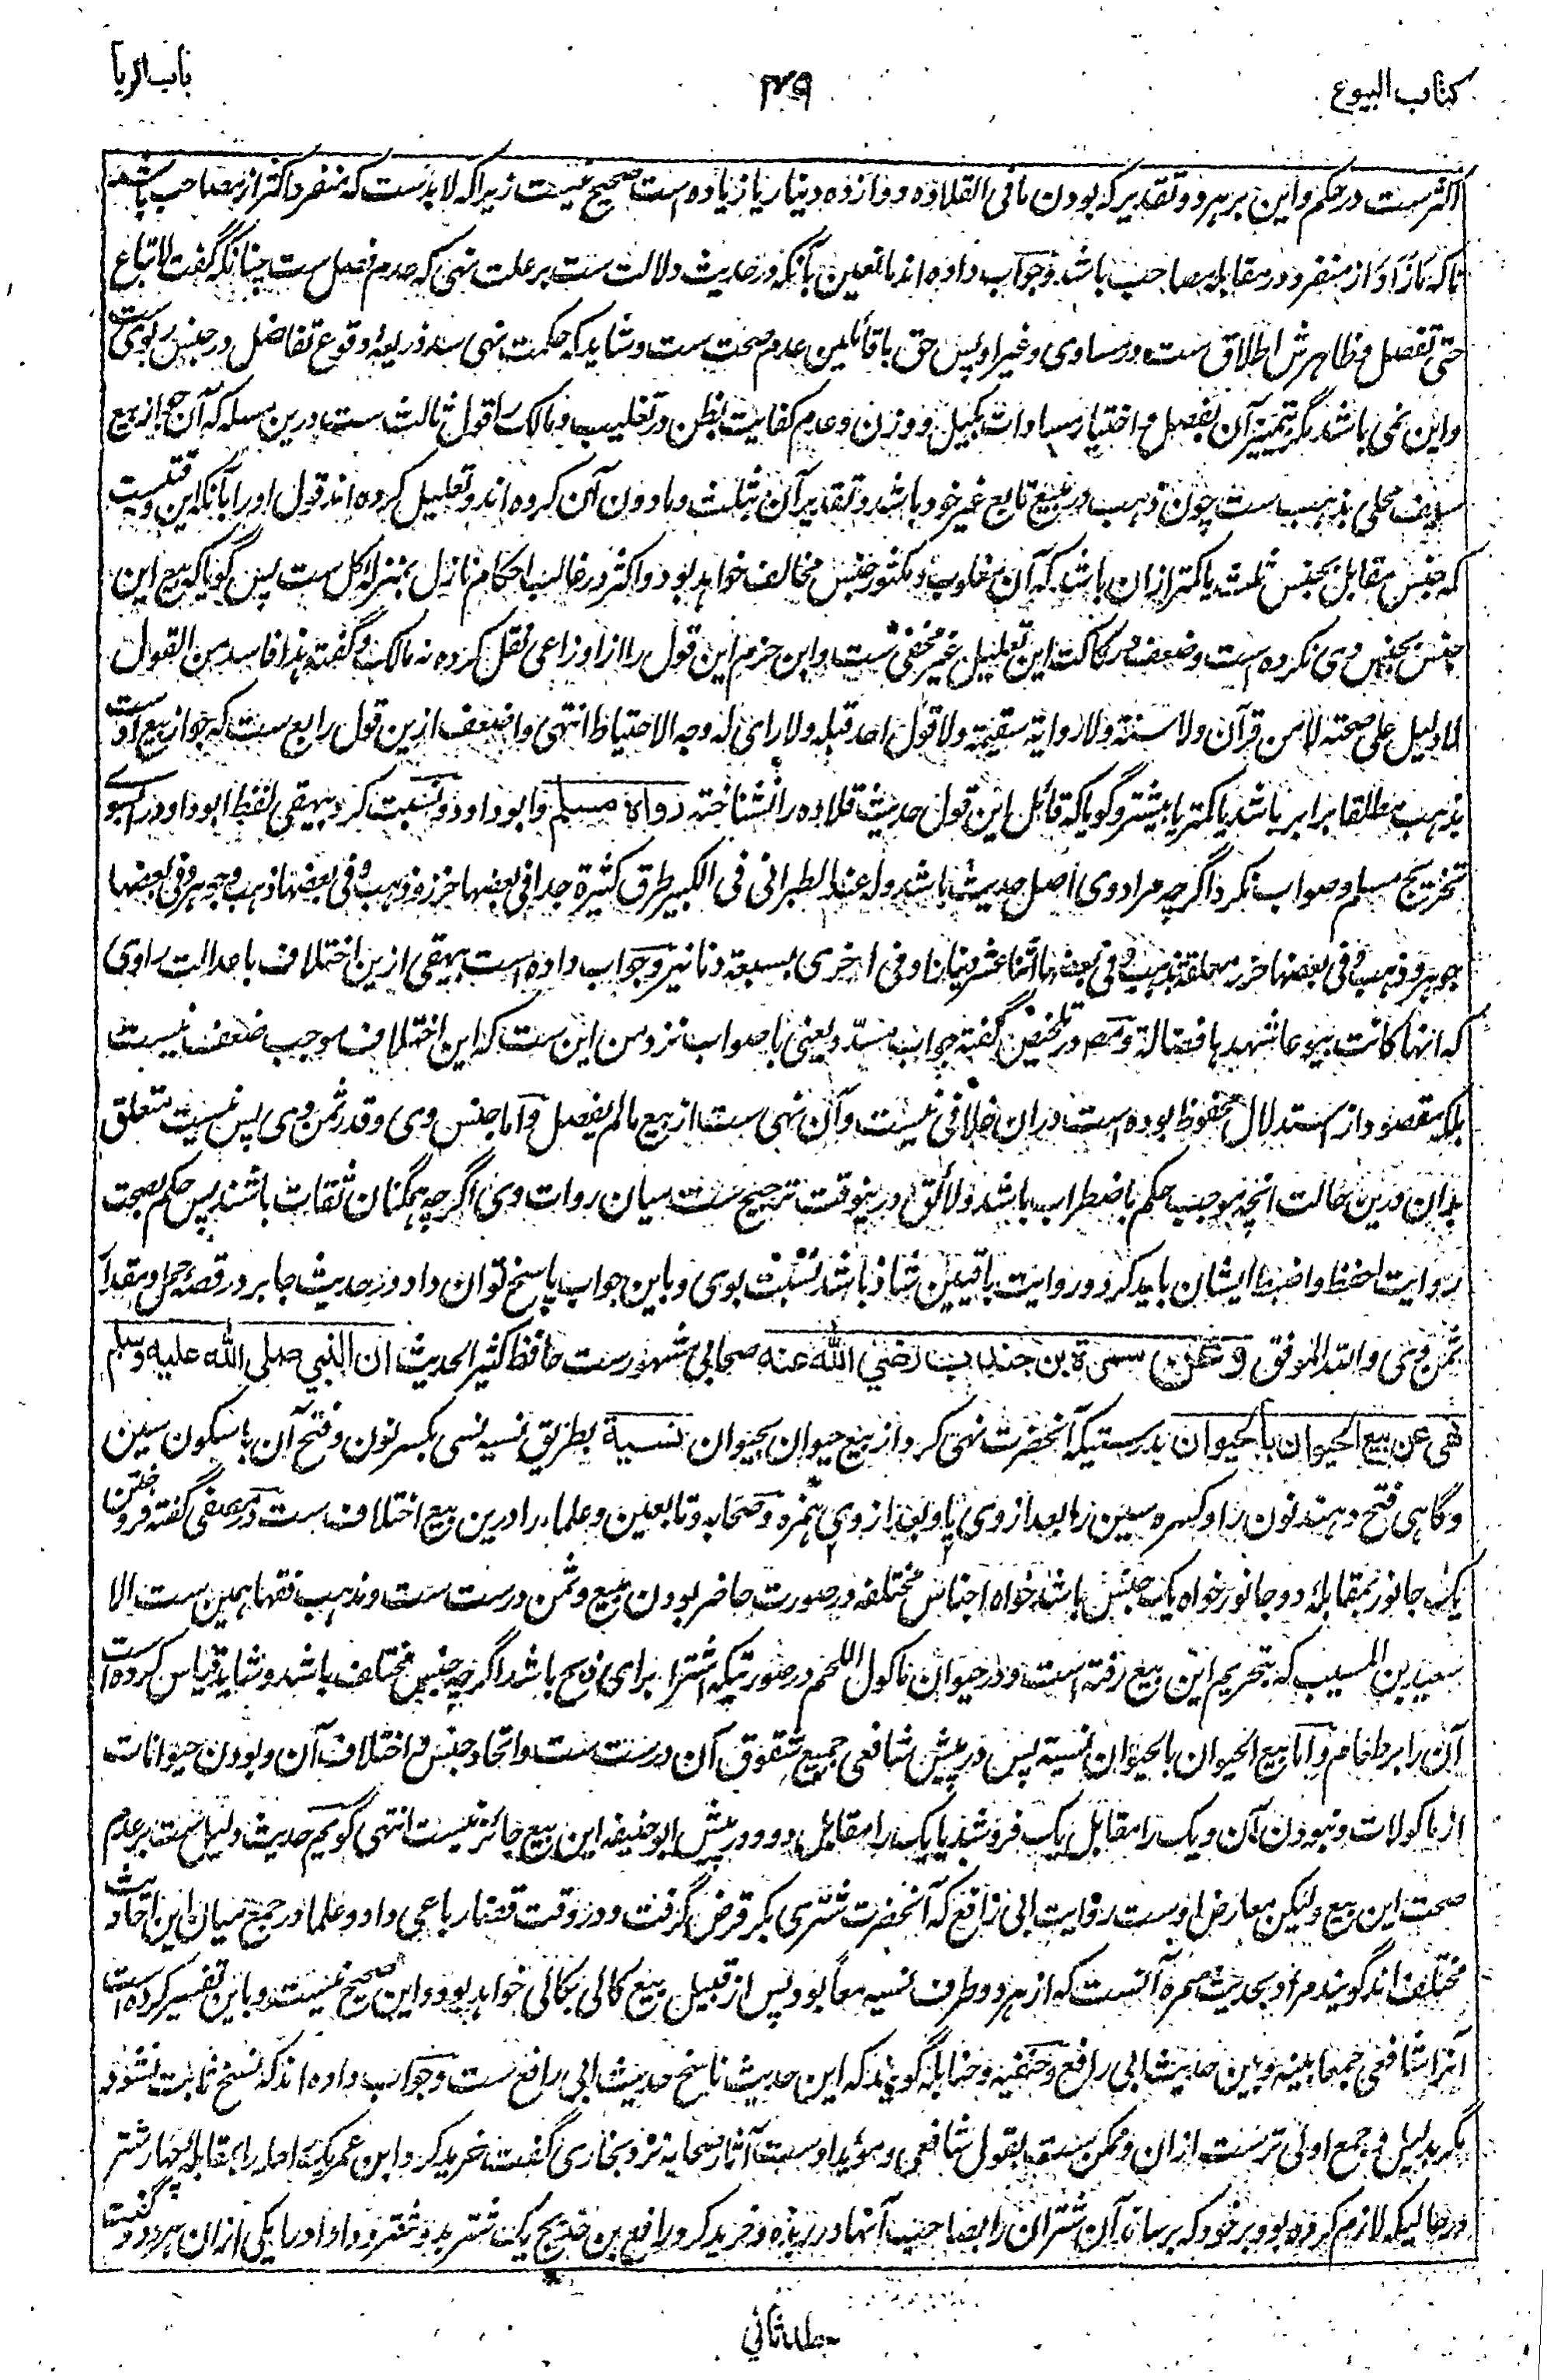 کتاب البیوع
۴۹
باب الربا
اکثرست در حکم و این بر هر دو تقدیر که بودن ما فی القلاوه دوازده دینار یا زیاده است صحیح نیست زیراکه لابدست که منفرد اکثر از مصاحب باشد
تاکه مازاد از منفرد در مقابله مصاحب باشد و جواب داده اند مانعین بآنکه در حدیث دلالت ست بر علت نهی که عدم فصل ست چنانکه گفت لا تباع
حتی تفصل و ظاهرش اطلاق ست در مساوی و غیر او پس حق با قائلین عدم صحت ست و شاید که حکمت نهی سد ذریعهٔ وقوع تفاضل در جنس ربوی ست
و این نمی باشد مگر بتمییز آن بفصل و اختیار مساوات بکیل و وزن و عدم کفایت بظن در تغلیب و مالک را قول ثالث ست درین مسله که آن جواز بیع
سیف محلی بذهب ست چون ذهب در مبیع تابع غیر خود باشد و تقدیر آن بثلث و مادون آن کرده اند و تعلیل کرده اند قول او را بآنکه این وقتیست
که جنس مقابل بجنس ثلث یا کمتر ازان باشد که آن مغلوب و مکثور جنس مخالف خواهد بود و اکثر در غالب احکام نازل بمنزله کل ست پس گویا که بیع این
جنس بجنس وی نکرده است و ضعف و رکاکت این تعلیل غیر مخفی ست و ابن حزم این قول را از اوزاعی نقل کرده نه مالک و گفته هذا فاسد من القول
لا دلیل علی صحته لا من قرآن ولا سنة ولا روایة سقیمة ولا قول احد قبله ولا رای له وجه الاحتیاط انتهی و اضعف ازین قول رابع ست که جواز بیع اوست
بذهب مطلقا برابر باشد یا کمتر یا بیشتر و گویا که قائل این قول حدیث قلاده را نشناخته رواه مسلم و ابو داود و نسبت کرد بیهقی لفظ ابو داود را بسوے
تخریج مسلم و صواب نکرد اگرچه مراد وی اصل حدیث باشد وله عند الطبرانی فی الکبیر طرق کثیرة جدا فی بعضها خرز و ذهب و فی بعضها ذهب و جوهر و فی بعضها
جوهر و ذهب و فی بعضها خرز معلقة بذهب و فی بعضها اثنا عشر دینارا و فی اخری بسبعة دنانیر و جواب داده است بیهقی ازین اختلاف با عدالت راوی
که انها کانت بیوعا شهدها فضالة و مصـ در تلخیص گفته جواب مسدد یعنی با صواب نزد من این ست که این اختلاف موجب ضعف نیست
بلکه مقصود از استدلال محفوظ بوده است دران خلافی نیست و آن نهی ست از بیع مالم یفصل و اما جنس وی و قدر ثمن وی پس نیست متعلق
بدان درین حالت انچه موجب حکم باضطراب باشد و لائق درینوقت ترجیح ست میان روات وی اگرچه همگنان ثقات باشند پس حکم بصحت
روایت احفظ و اضبط ایشان باید کرد و روایت باقیین شاذ باشد نسبت بوی و باین جواب پاسخ توان داد در حدیث جابر در قصهٔ جمل و مقدار
ثمن وی والله الموفق وعن سمرة بن جندب رضي الله عنه صحابی مشهورست حافظ کثیر الحدیث ان النبي صلی الله علیه وسلم
نهی عن بیع الحیوان بالحیوان بدرستیکه آنحضرت نهی کرد از بیع حیوان بحیوان نسیة بطریق نسیه نسی بکسر نون و فتح آن باسکون سین
و گاهی فتح دهند نون را و کسره سین را بعد از وی یا و بعد از وی همزه و صحابه و تابعین و علماء را درین بیع اختلاف ست در مصفی گفته فروختن
یک جانور بمقابلهٔ دو جانور خواه یک جنس باشد خواه اجناس مختلفه در صورت حاضر بودن مبیع و ثمن درست ست و مذهب فقها همین ست الا
سعید بن المسیب که بتحریم این بیع رفته است و در حیوان ماکول اللحم در صورتیکه اشترا برای ذبح باشد اگرچه جنس مختلف باشد و شاید قیاس کرده است
آن را بر طعام و اما بیع الحیوان بالحیوان نسیة پس در پیش شافعی جمیع شقوق آن درست ست و اتحاد جنس و اختلاف آن و بودن حیوانات
از ماکولات و نبودن آن و یک را مقابل یک فروشد یا یک را مقابل دو و در پیش ابو حنیفه این بیع جائز نیست انتهی گویم حدیث دلیل ست بر عدم
صحت این بیع ولیکن معارض اوست روایت ابی رافع که آنحضرت شتری بکر قرض گرفت و در وقت قضا رباعی داد و علما در جمع میان این احادیث
مختلف اند گویند مراد بحدیث سمره آنست که از هر دو طرف نسیه معاً بود پس از قبیل بیع کالی بکالی خواهد بود و این صحیح نیست و باین تفسیر کرده است
آنرا شافعی جمعا بینه و بین حدیث ابی رافع و حنفیه و حنابله گویند که این حدیث ناسخ حدیث ابی رافع ست و جواب داده اند که نسخ ثابت نشود
مگر بدلیل و جمع اولی ترست ازان و ممکن ست بقول شافعی و مؤید اوست آثار صحابه نزد بخاری گفت خرید کرد ابن عمر یک راحله را بمقابله چهار شتر
درحالیکه لازم کرده بود بر خود که برساند آن شتران را بصاحب آنها در ربذه و خرید کرد رافع بن خدیج یک شتر بدو شتر و داد او را یکی ازان هر دو و گفت
جلد ثانی